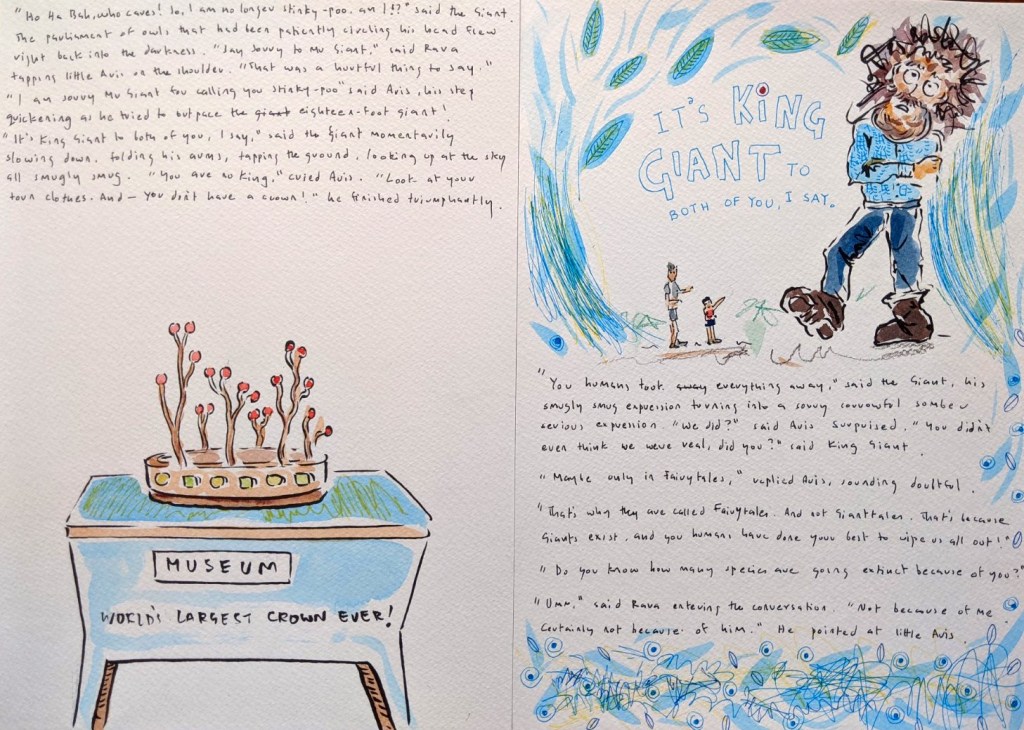 "Ho Ha Bah, who cares! So, I am no longer stinky-poo, am I!?" said the Giant.
The parliament of owls that had been patiently circling his head flew
right back into the darkness. "Say sorry to Mr Giant," said Rava
tapping little Avis on the shoulder. "That was a hurtful thing to say."
"I am sorry Mr Giant for calling you stinky-poo" said Avis, his step
quickening as he tried to outpace the giant eighteen-foot giant!
"It's King Giant to both of you, I say," said the Giant momentarily
slowing down, folding his arms, tapping the ground, looking up at the sky
all smugly smug. "You are no king," cried Avis. "Look at your
torn clothes. And – you don't have a crown!" he finished triumphantly.
MUSEUM
WORLD'S LARGEST CROWN EVER!
IT'S KING
GIANT TO
BOTH OF YOU, I SAY.
"You humans took away everything away," said the Giant, his
smugly smug expression turning into a sorry sorrowful sombre
serious expression "We did?" said Avis surprised. "You didn't
even think we were real, did you?" said King Giant.
"Maybe only in Fairytales," replied Avis, sounding doubtful.
"That's why they are called Fairytales. And not Gianttales. That's because
Giants exist, and you humans have done your best to wipe us all out!"
"Do you know how many species are going extinct because of you?"
"Umm," said Rava entering the conversation. "Not because of me
Certainly not because of him." He pointed at little Avis.